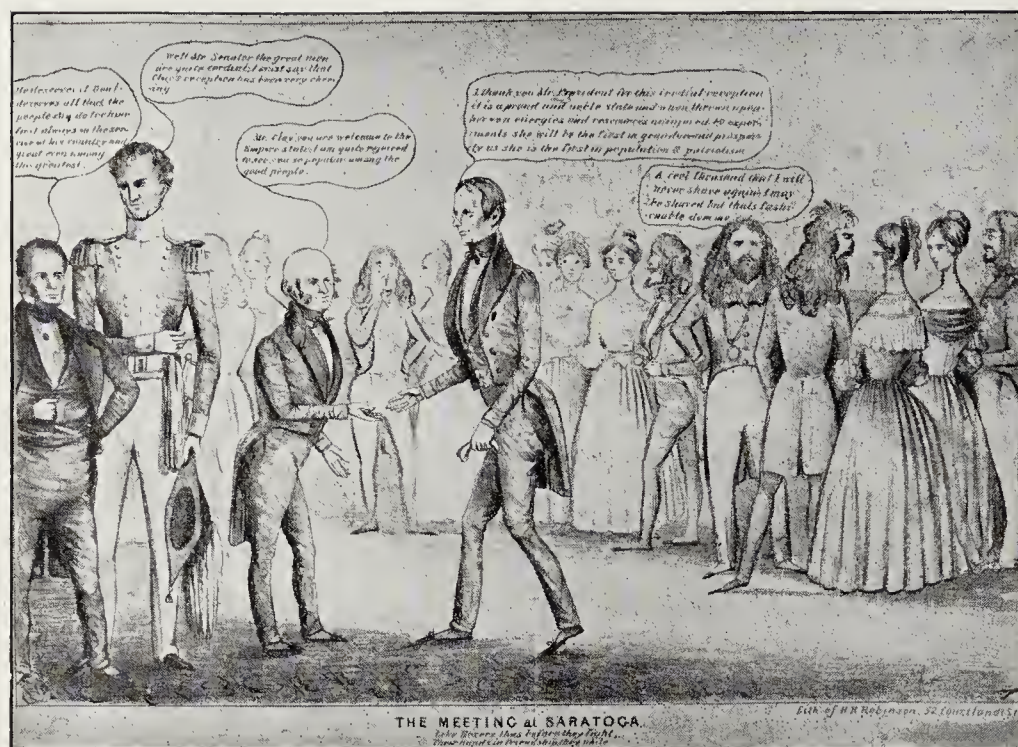 deserves all that the
people can do for him
first always in the ser-
vice of his country and
great even among
the greatest.
Well Mr Senator the great men
are quite cordial I must say that
Clay's reception has been very cheer-
ing
Mr. Clay, you are welcome to the
Empire state I am quite rejoiced
to see you so popular among the
good people.
I thank you Mr. President for this cordial reception
it is a proud and noble state and when thrown upon
her own energies and resources unfettered by experi-
ments she will be the first in grandeur and prosperi-
ty as she is the first in population & patriotism
A cool thousand that I will
never shave again I may
be shaved but thats fashi-
onable
THE MEETING at SARATOGA.
Like Boxers thus before they fight,
Their hands in friendship they unite
Lith of H R Robinson, 52 Courtlandt St